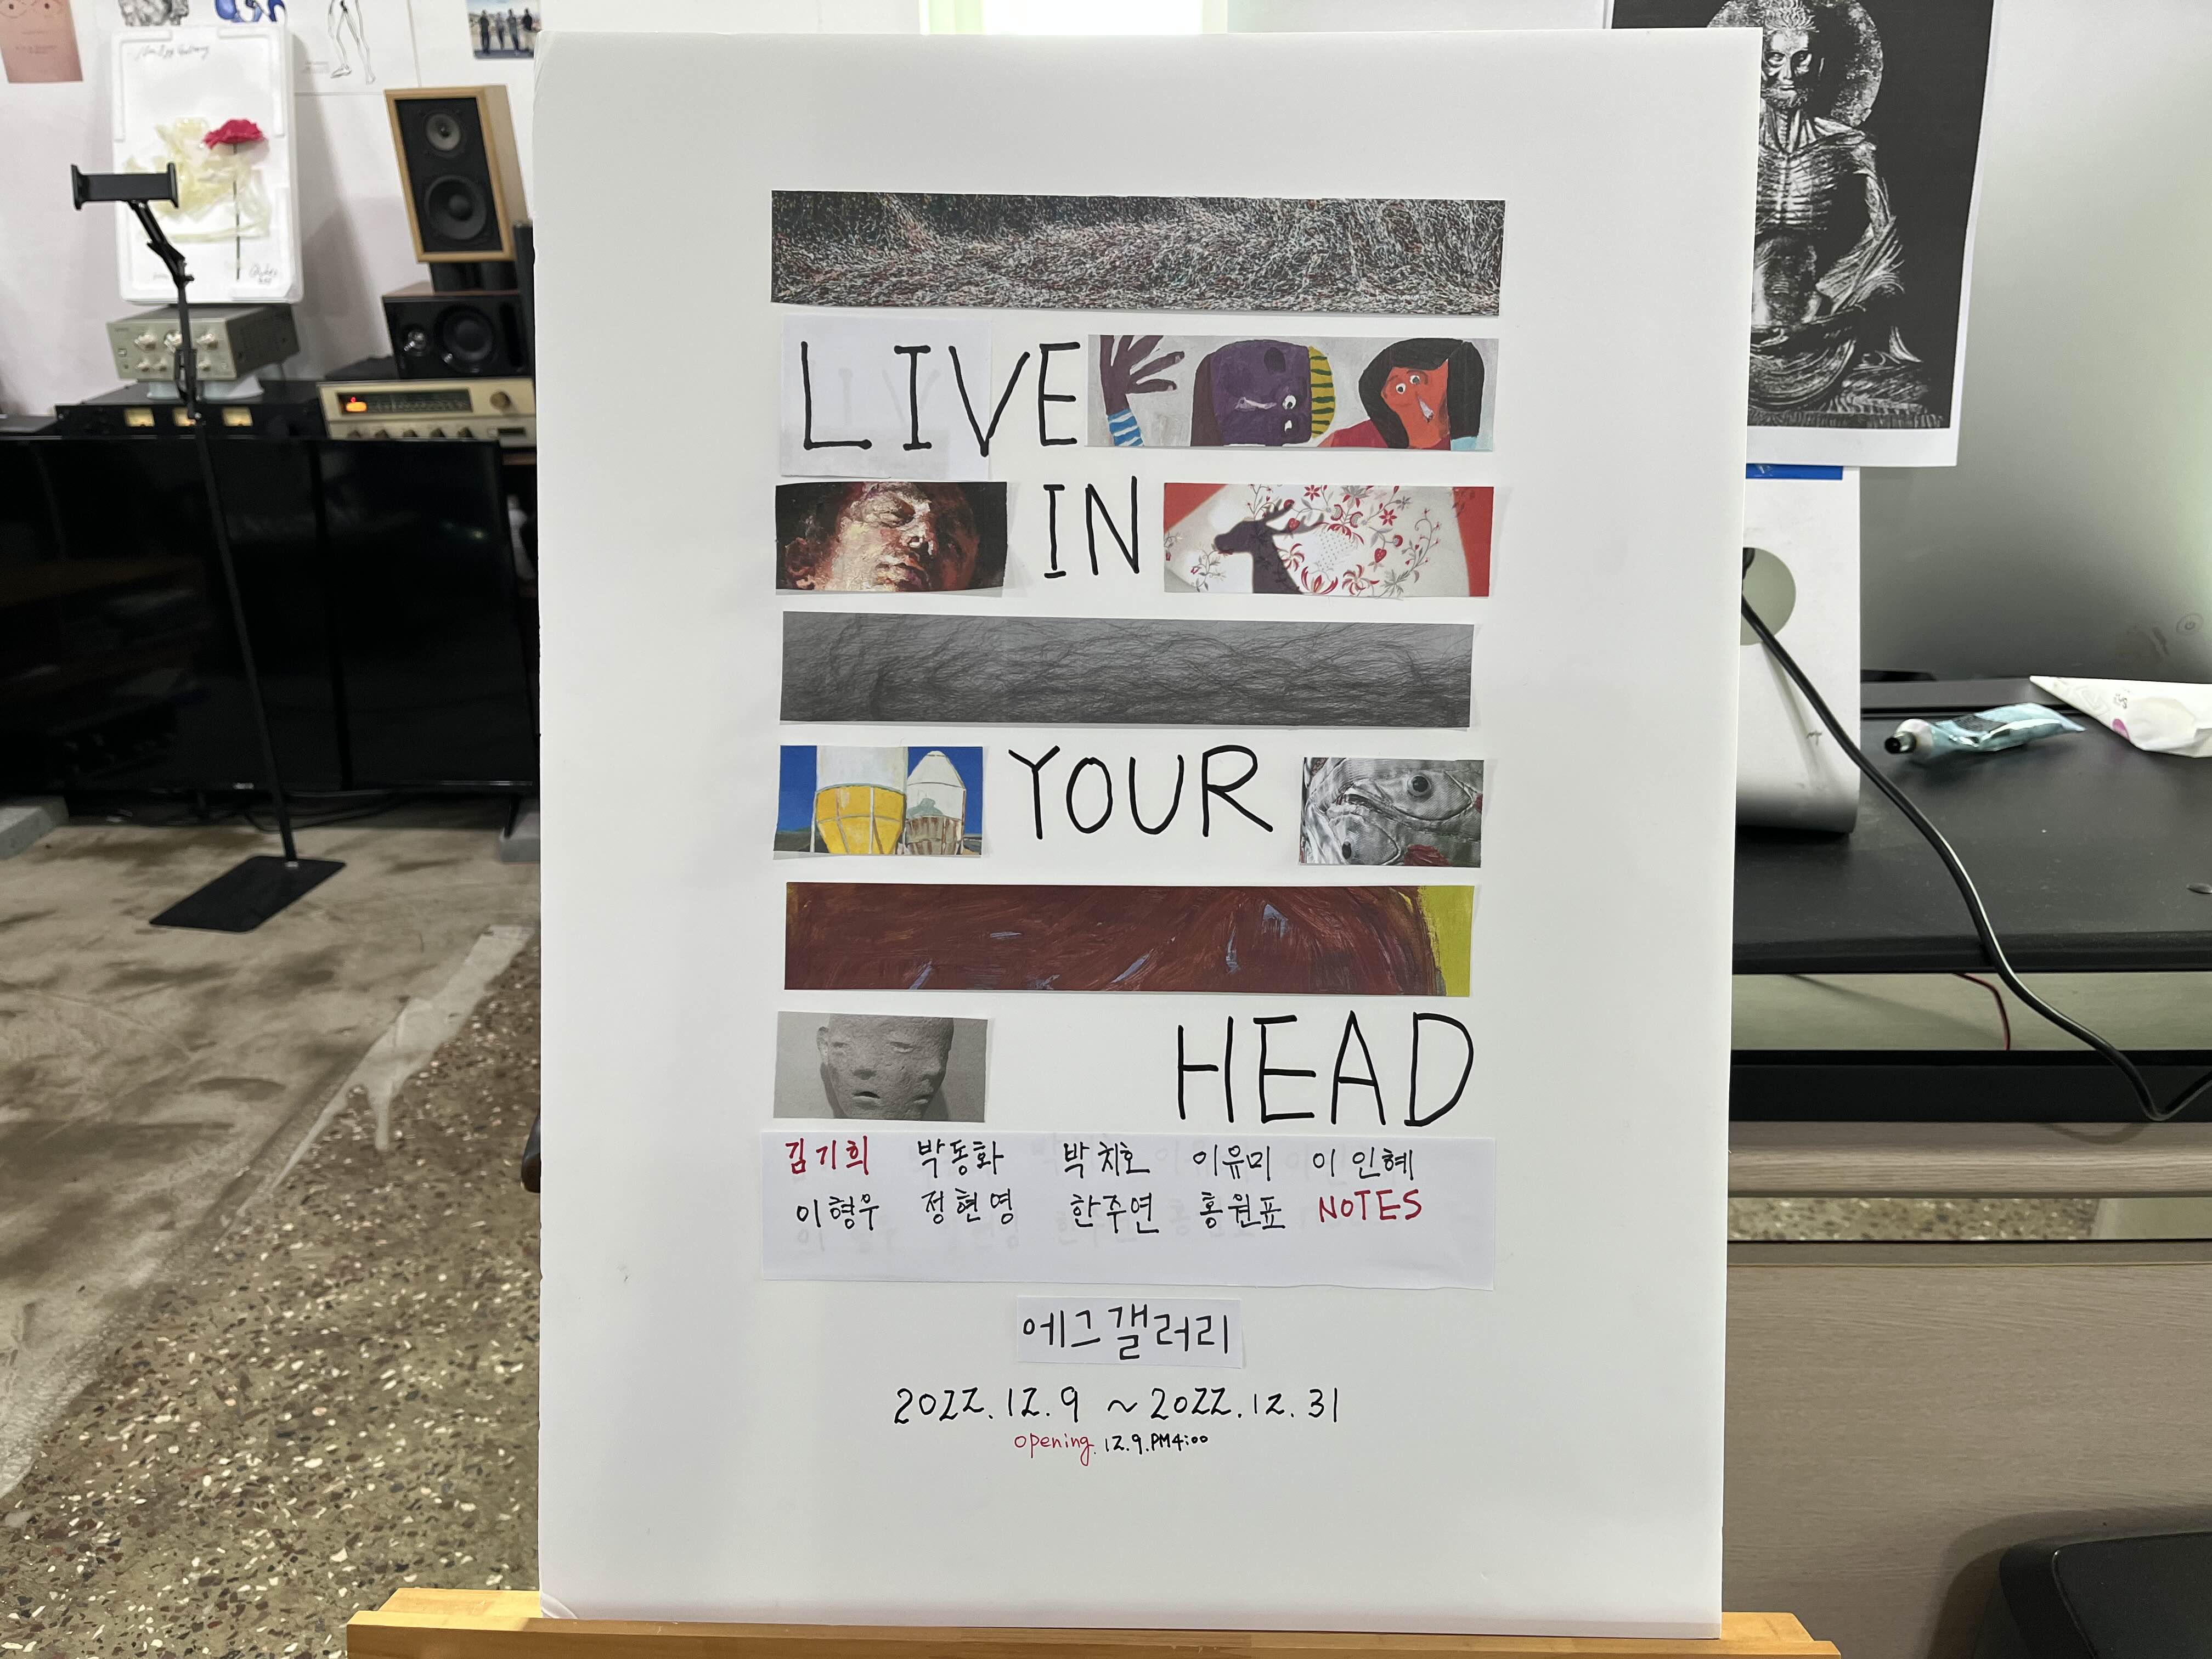 LIVE
IN
YOUR
HEAD
김기희 박동화 박치호 이유미 이인혜
이형우 정현영 한주연 홍원표 NOTES
에그갤러리
2022.12.9 ~ 2022.12.31
opening. 12.9.PM4:00